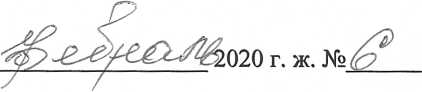 февраль 2020 г. ж. № 6